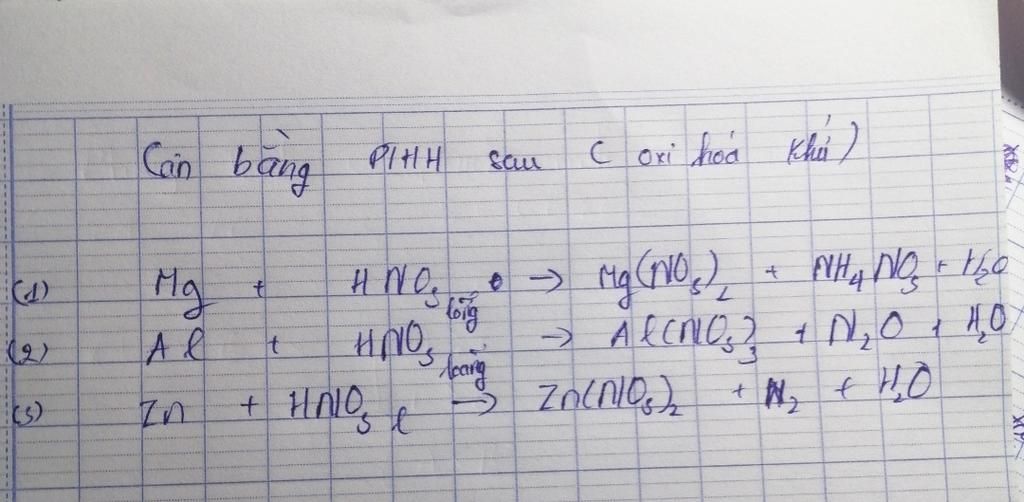 Cân bằng PTHH sau ( oxi hoá khử)
(1) Mg + HNO3 loãng → Mg(NO3)2 + NH4NO3 + H2O
(2) Al + HNO3 loãng → Al(NO3)3 + N2O + H2O
(3) Zn + HNO3 l → Zn(NO3)2 + N2 + H2O